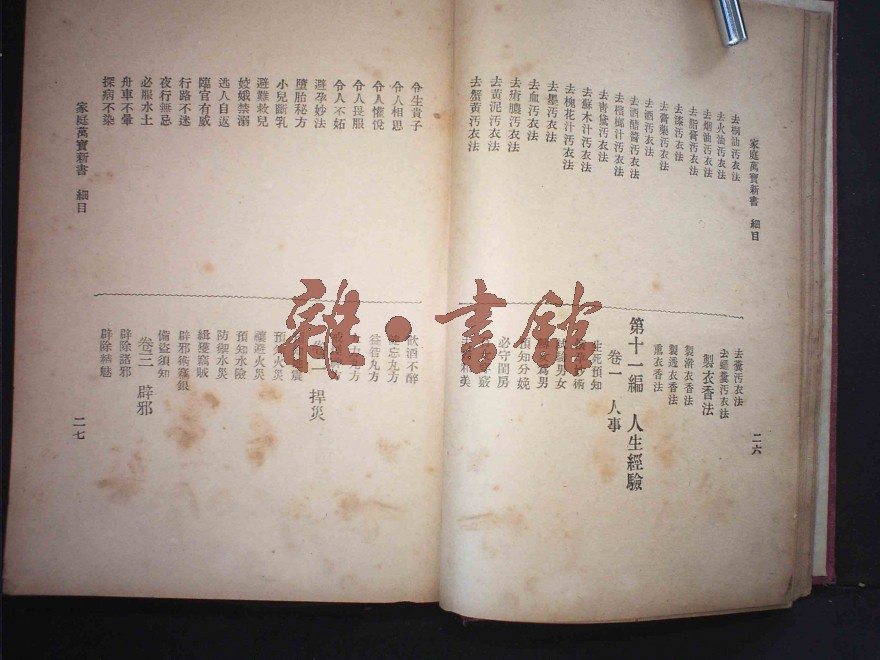 家庭萬寶新書　細目
二六
去桐油汚衣法
去火油汚衣法
去烟油汚衣法
去脂膏汚衣法
去膏藥汚衣法
去漆汚衣法
去酒汚衣法
去酒醋醬汚衣法
去檳榔汁汚衣法
去青黛汚衣法
去蘇木汁汚衣法
去槐花汁汚衣法
去墨汚衣法
去血汚衣法
去瘡膿汚衣法
去黃泥汚衣法
去蟹黃汚衣法
去糞汚衣法
去蠅糞汚衣法
製衣香法
製澣衣香法
製透衣香法
熏衣香法
第十一編　人生經驗
卷一　人事
生死預知
男女
爲男
預知分娩
必守閨房
美
令生貴子
令人相思
令人懽悅
令人畏服
令人不妬
避孕妙法
墮胎秘方
小兒斷乳
避難救兒
姣娥禁溺
逃人自返
臨官有威
行路不迷
夜行無忌
必服水土
舟車不暈
探病不染
飲酒不醉
忘九方
益智丸方
捍災
震
預知火災
禳避火災
預知水險
防禦水災
緝獲竊賊
辟邪術
備盜須知
卷三　辟邪
辟除諸邪
辟除精魅
家庭萬寶新書　細目
二七
雜·書館